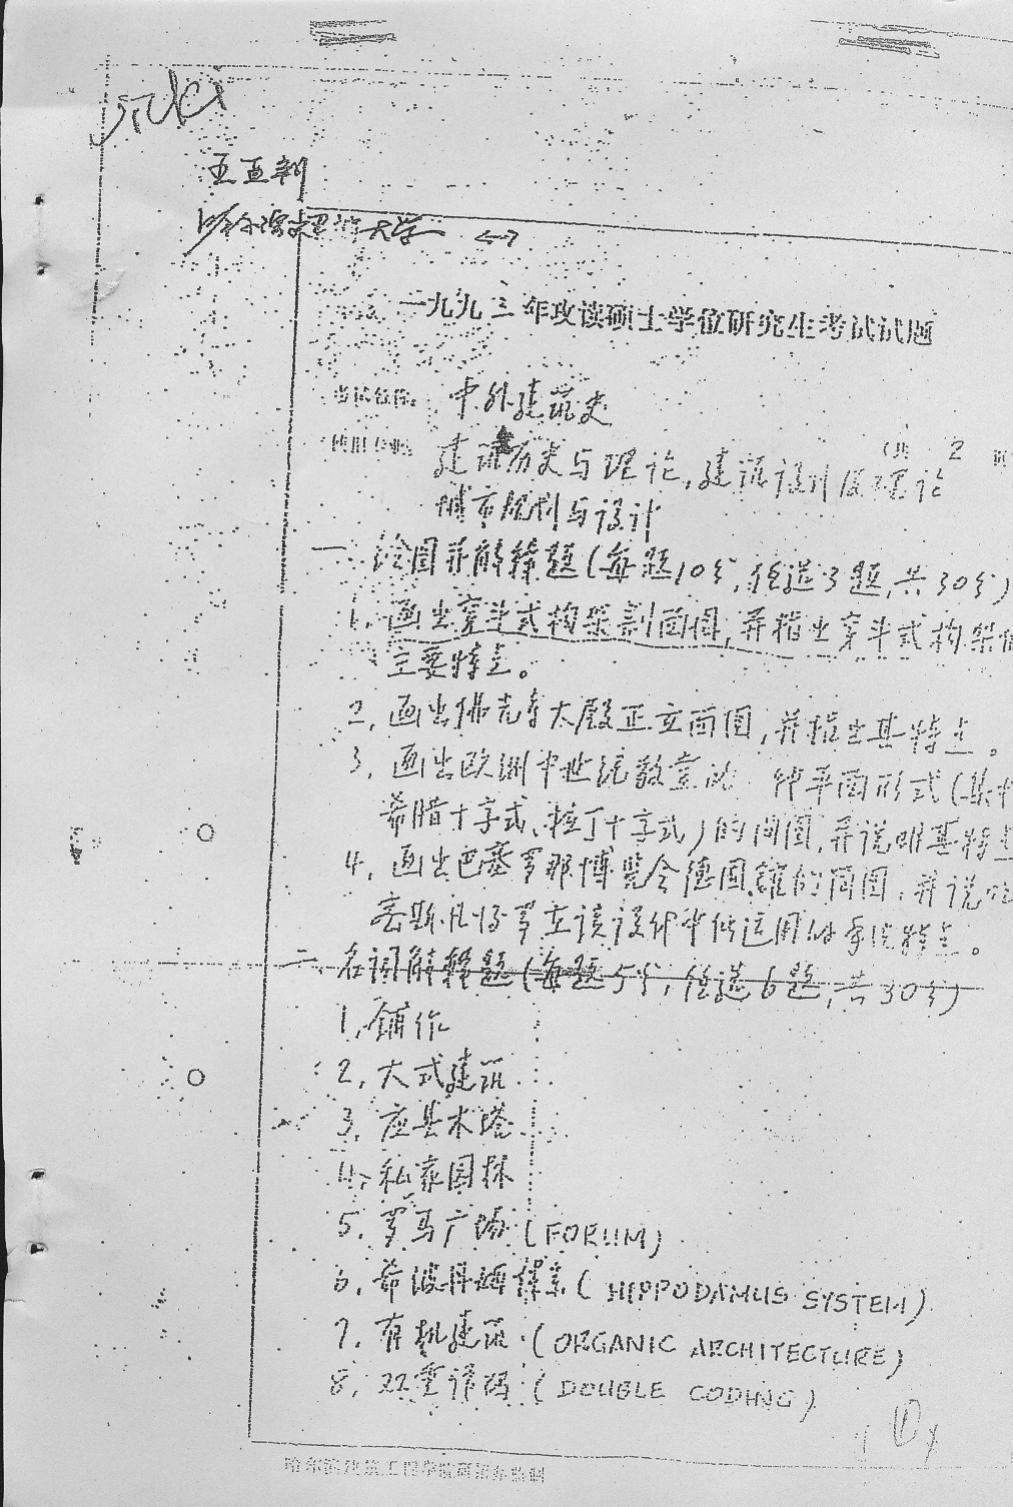 一九九三年攻读硕士学位研究生考试试题
考试科目: 中外建筑史
建筑历史与理论,建筑设计及理论
(共 2
城市规划与设计
一、绘图并解释题(每题10分,任选3题,共30分)
1、画出穿斗式构架剖面图,并指出穿斗式构架
主要特点。
2、画出佛光寺大殿正立面图,并指出其特点。
3、画出欧洲中世纪教堂 种平面形式(集中
希腊十字式、拉丁十字式)的简图,并说明其特点
4、画出巴塞罗那博览会德国馆的简图,并说
密斯·凡·德·罗在该设计中所运用的手法特点。
二、名词解释题(每题5分,任选6题,共30分)
1、铺作
2、大式建筑
3、应县木塔
4、私家园林
5、罗马广场(FORUM)
6、希波丹姆体系(HIPPODAMUS SYSTEM)
7、有机建筑(ORGANIC ARCHITECTURE)
8、双重译码(DOUBLE CODING)
哈尔滨建筑工程学院